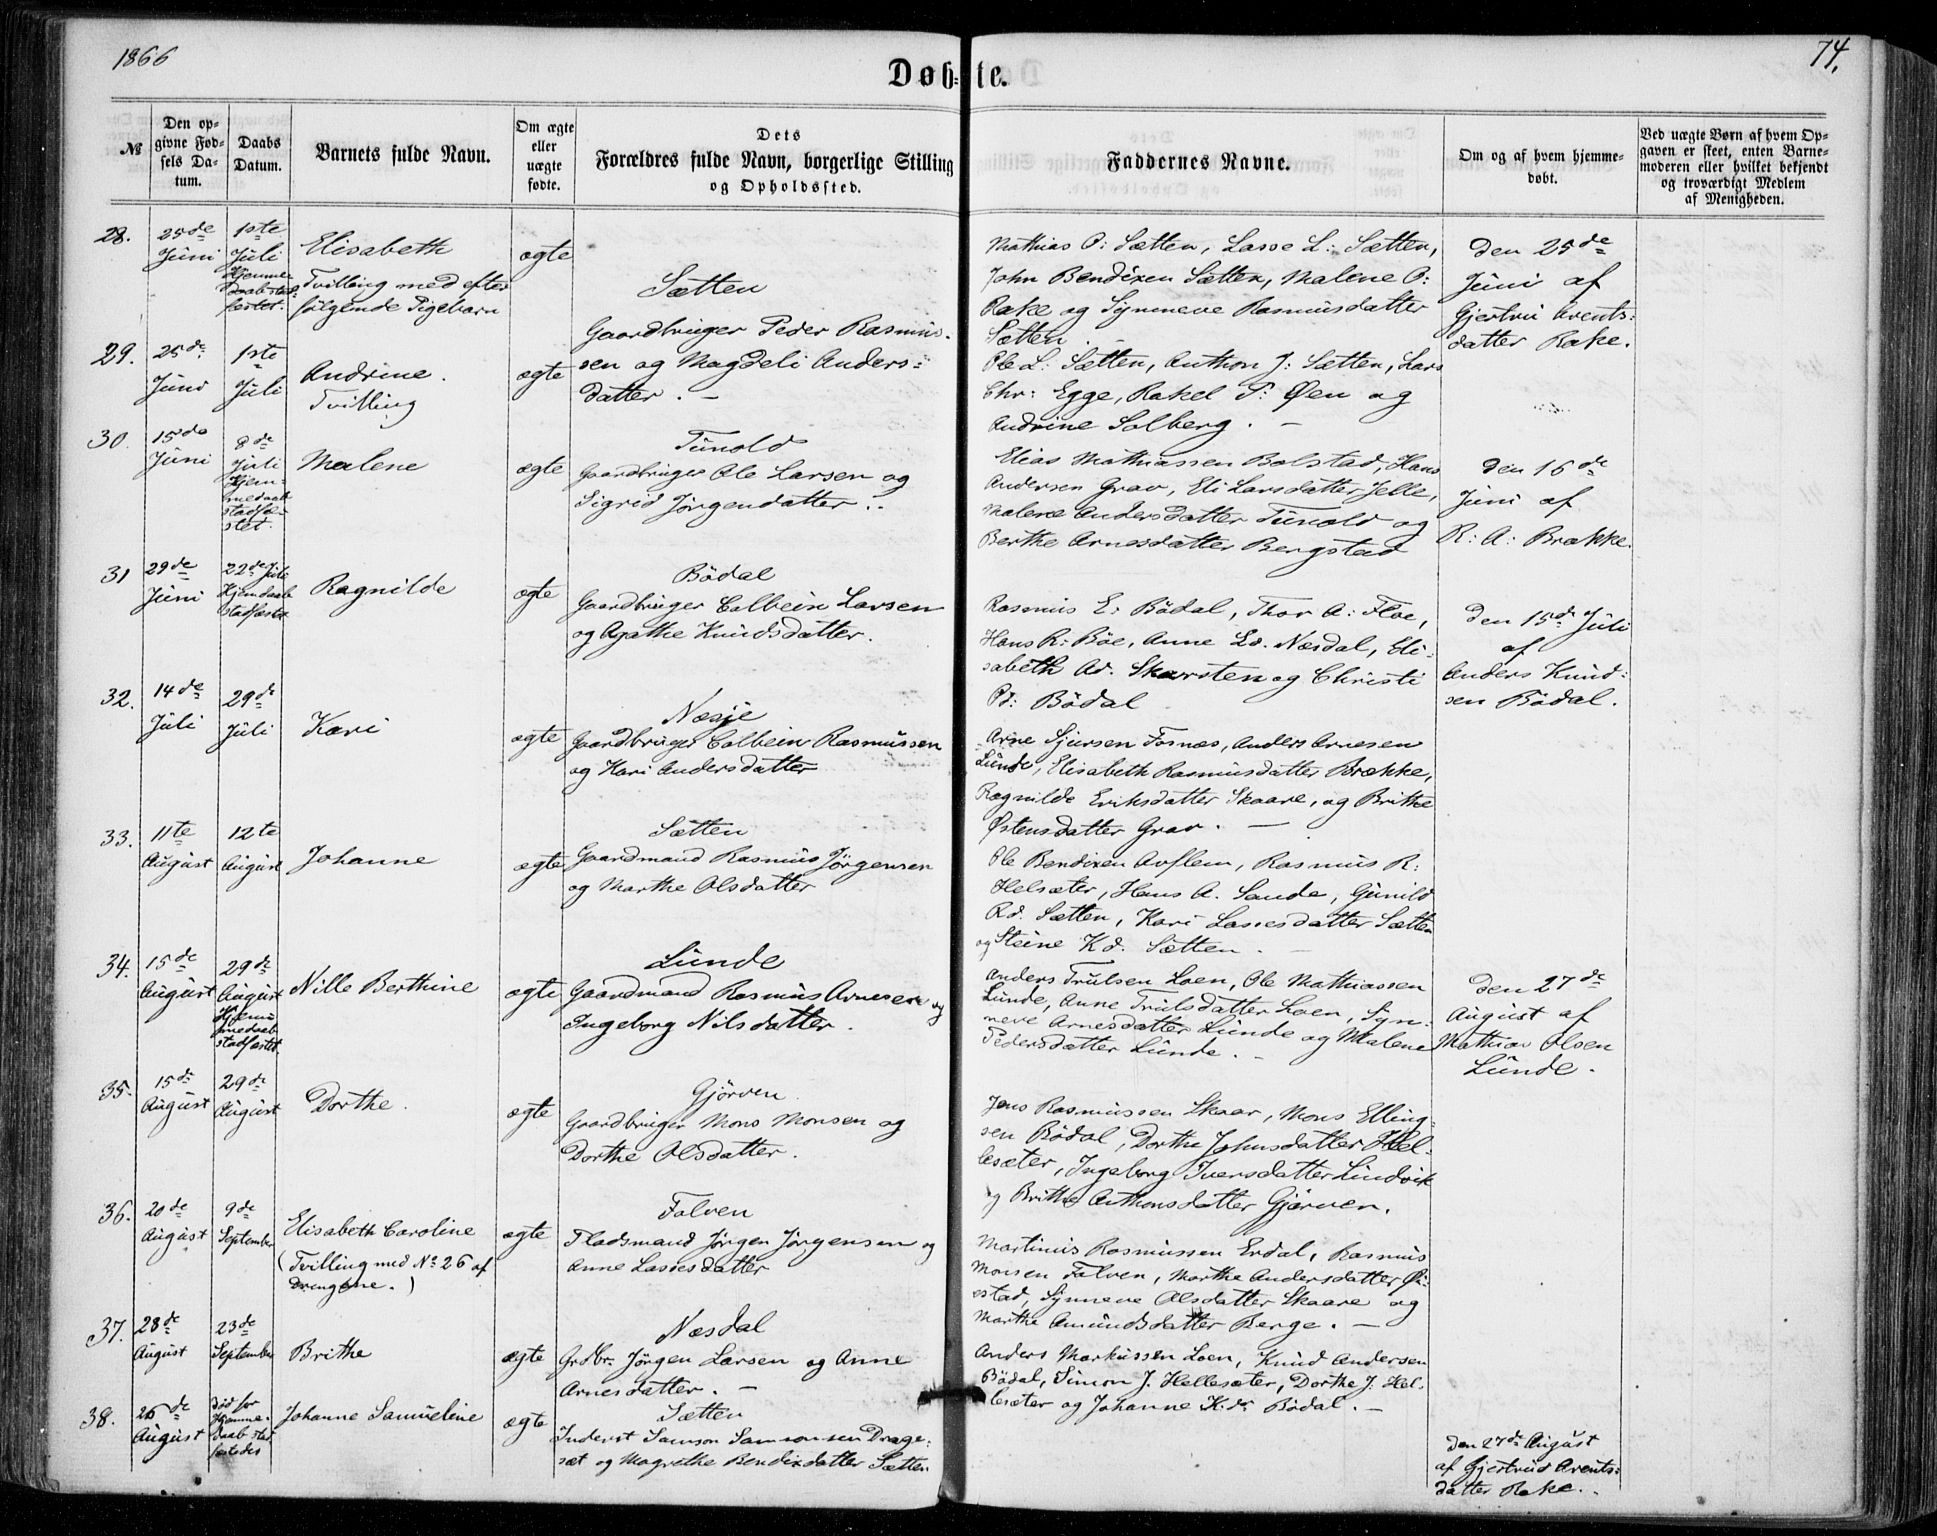 1866
74.
Døbte.
№
Den op-
givne Fød-
sels Da-
tum.
Daabs
Datum.
Barnets fulde Navn.
Om ægte
eller
uægte
fødte.
Dets
Forældres fulde Navn, borgerlige Stilling
og Opholdssted.
Faddernes Navne.
Om og af hvem hjemme-
døbt.
Ved uægte Børn af hvem Op-
gaven er skeet, enten Barne-
moderen eller hvilket bekjendt
og troværdigt Medlem
af Menigheden.
28.
25de
Juni
1ste
Juli
Hjemme-
daab stad-
fæstet.
Elisabeth
Tvilling med efter
følgende Pigebarn
ægte
Sætten
Gaardbruger Peder Rasmus-
sen og Magdeli Anders-
datter. –
Mathias P: Sætten, Lasse L: Sætten,
John Bendixen Sætten, Malene P:
Rake og Synneve Rasmusdatter
Sætten. –
Den 25de
Juni af
Gjertru Arents-
datter Rake.
29.
25de
Juni
1ste
Juli
Andrine.
Tvilling
ægte
Ole L: Sætten, Anthon J: Sætten, Lars
Chr: Egge, Rakel P: Øen og
Andrine Solberg. –
30.
15de
Juni
8de
Juli
Hjem-
medaab
stadfæ-
stet.
Malene
ægte
Tunold
Gaardbruger Ole Larsen og
Sigrid Jörgendatter.
Elias Mathiassen Bolstad, Hans
Andersen Grav, Eli Larsdatter Jelle,
Malene Andersdatter Tunold og
Berthe Arnesdatter Bergstad
Den 16de
Juni af
R: A: Brække.
31
29de
Juni
22de Juli
Hjemdaab
stadfæstet
Ragnilde
ægte
Bödal
Gaardbruger Colbein Larsen
og Agathe Knudsdatter.
Rasmus E: Bödal, Thor A: Floe,
Hans R: Böe, Anne Ld. Næsdal, Eli-
sabeth Ad. Skarsten og Christi
Pd: Bödal
Den 15de Juli
af
Anders Knud-
sen Bödal.
32.
14de
Juli
29de
Juli
Kari
ægte
Næsje
Gaardbruger Colbein Rasmussen
og Kari Andersdatter
Arne Sjursen Fosnæs, Anders Arnesen
Lunde, Elisabeth Rasmusdatter Brække,
Ragnilde Eriksdatter Skaare, og Brithe
Östensdatter Grav. –
33.
11te
August
12te
August
Johanne
ægte
Sætten
Gaardmand Rasmus Jörgensen
og Marthe Olsdatter
Ole Bendixen Avflem, Rasmus R:
Helsæter, Hans A. Sande, Gunild
Rd. Sætten, Kari Lassesdatter Sætten
og Steine Kd. Sætten. –
34.
15de
August
29de
August
Hjem-
medaab
stadfæstet
Nille Berthine
ægte
Lunde
Gaardmand Rasmus Arnesen og
Ingeborg Nilsdatter.
Anders Trulsen Loen, Ole Mathiassen
Lunde, Anne Trulsdatter Loen, Syn-
neve Arnesdatter Lunde og Malene
Pedersdatter Lunde. –
Den 27de
August af
Mathias Olsen
Lunde.
35.
15de
August
29de
August
Dorthe.
ægte
Gjörven
Gaardbruger Mons Monsen og
Dorthe Olsdatter.
Jens Rasmussen Skaar, Mons Elling-
sen Bödal, Dorthe Johnsdatter Hel-
lesæter, Ingeborg Iversdatter Lindvik
og Brithe Anthonsdatter Gjörven.
36.
20de
August
9de
September
Elisabeth Caroline
(Tvilling med No 26 af
Drengene.)
ægte
Folven
Pladsmand Jörgen Jörgensen og
Anne Lassesdatter
Martinus Rasmussen Erdal, Rasmus
Monsen Folven, Marthe Andersdatter Öi-
estad, Synneve Olsdatter Skaare og
Marthe Amundsdatter Berge. –
37.
28de
August
23de
September
Brithe
ægte
Næsdal
Grdbr. Jörgen Larsen og Anne
Arnesdatter. –
Anders Markussen Loen, Knud Andersen
Bödal, Simon J. Hellesæter, Dorthe J. Hel-
lesæter og Johanne Kd: Bödal. –
38.
26de
August
död før
Hjemme-
daab stad
fæstedes
Johanne Samueline
ægte
Sætten
Inderst Samson Samsonsen Drage-
sæt og Magrethe Bendixdatter Sætten
Den 27de August
af Gjertrud Arents-
datter Rake.